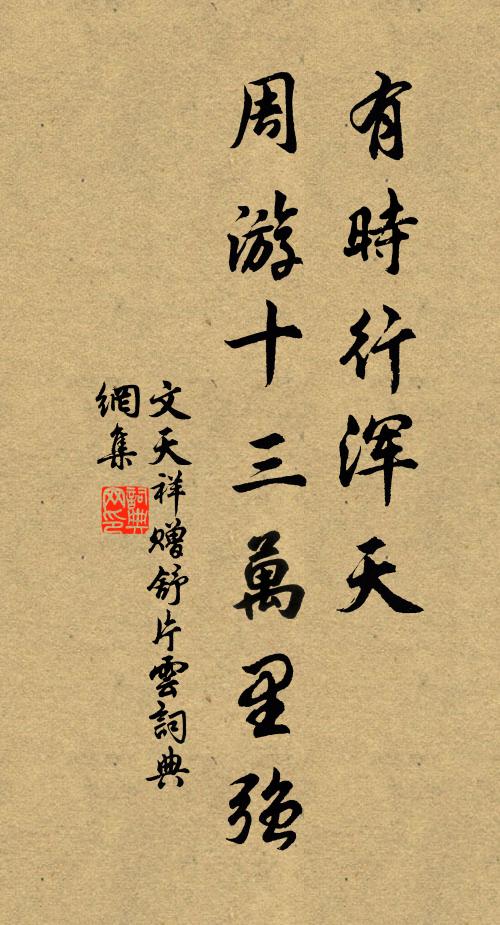 有時行渾天
周游十三萬里強
文天祥贈舒片雲詞典
網集
詞典
网印